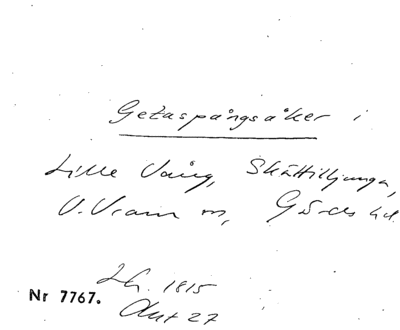 Getaspångsåker i
Lille Vång, Skättilljunga,
V. Vram sn, Gärds hd.
Lh. 1815
Akt 27
Nr 7767.